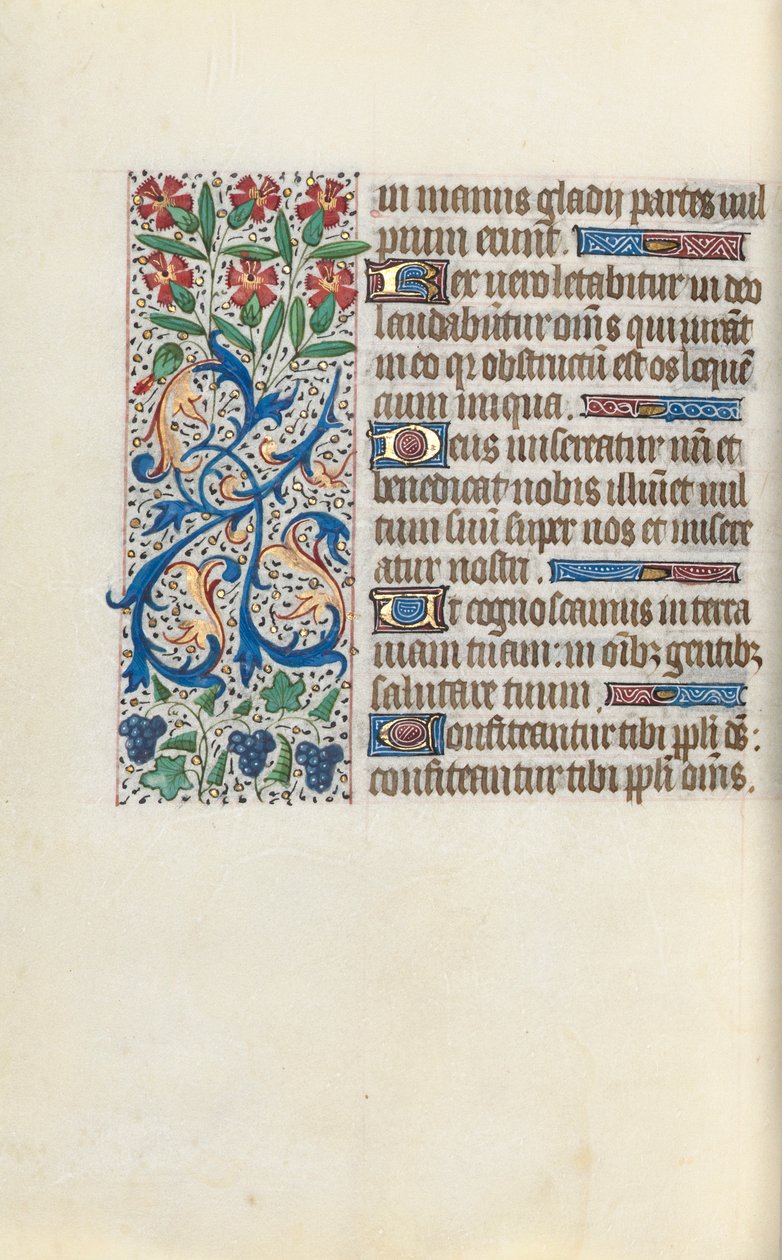 in manus gladii partes uul
pium erunt.
Rex uero letabitur in deo
laudabūtur om̄s qui iurāt
in eo qꝛ obstructū est os loquē
cium iniqua.
Deus misereatur nr̄i et
benedicat nobis illūīet uul
tum suū super nos et misere
atur nostri.
Ut cognoscamus in terra
uiam tuam: in oībꝫ gentibꝫ
salutare tuum.
Confiteantur tibi ppl̄i ds̄:
confiteantur tibi ppl̄i om̄s.